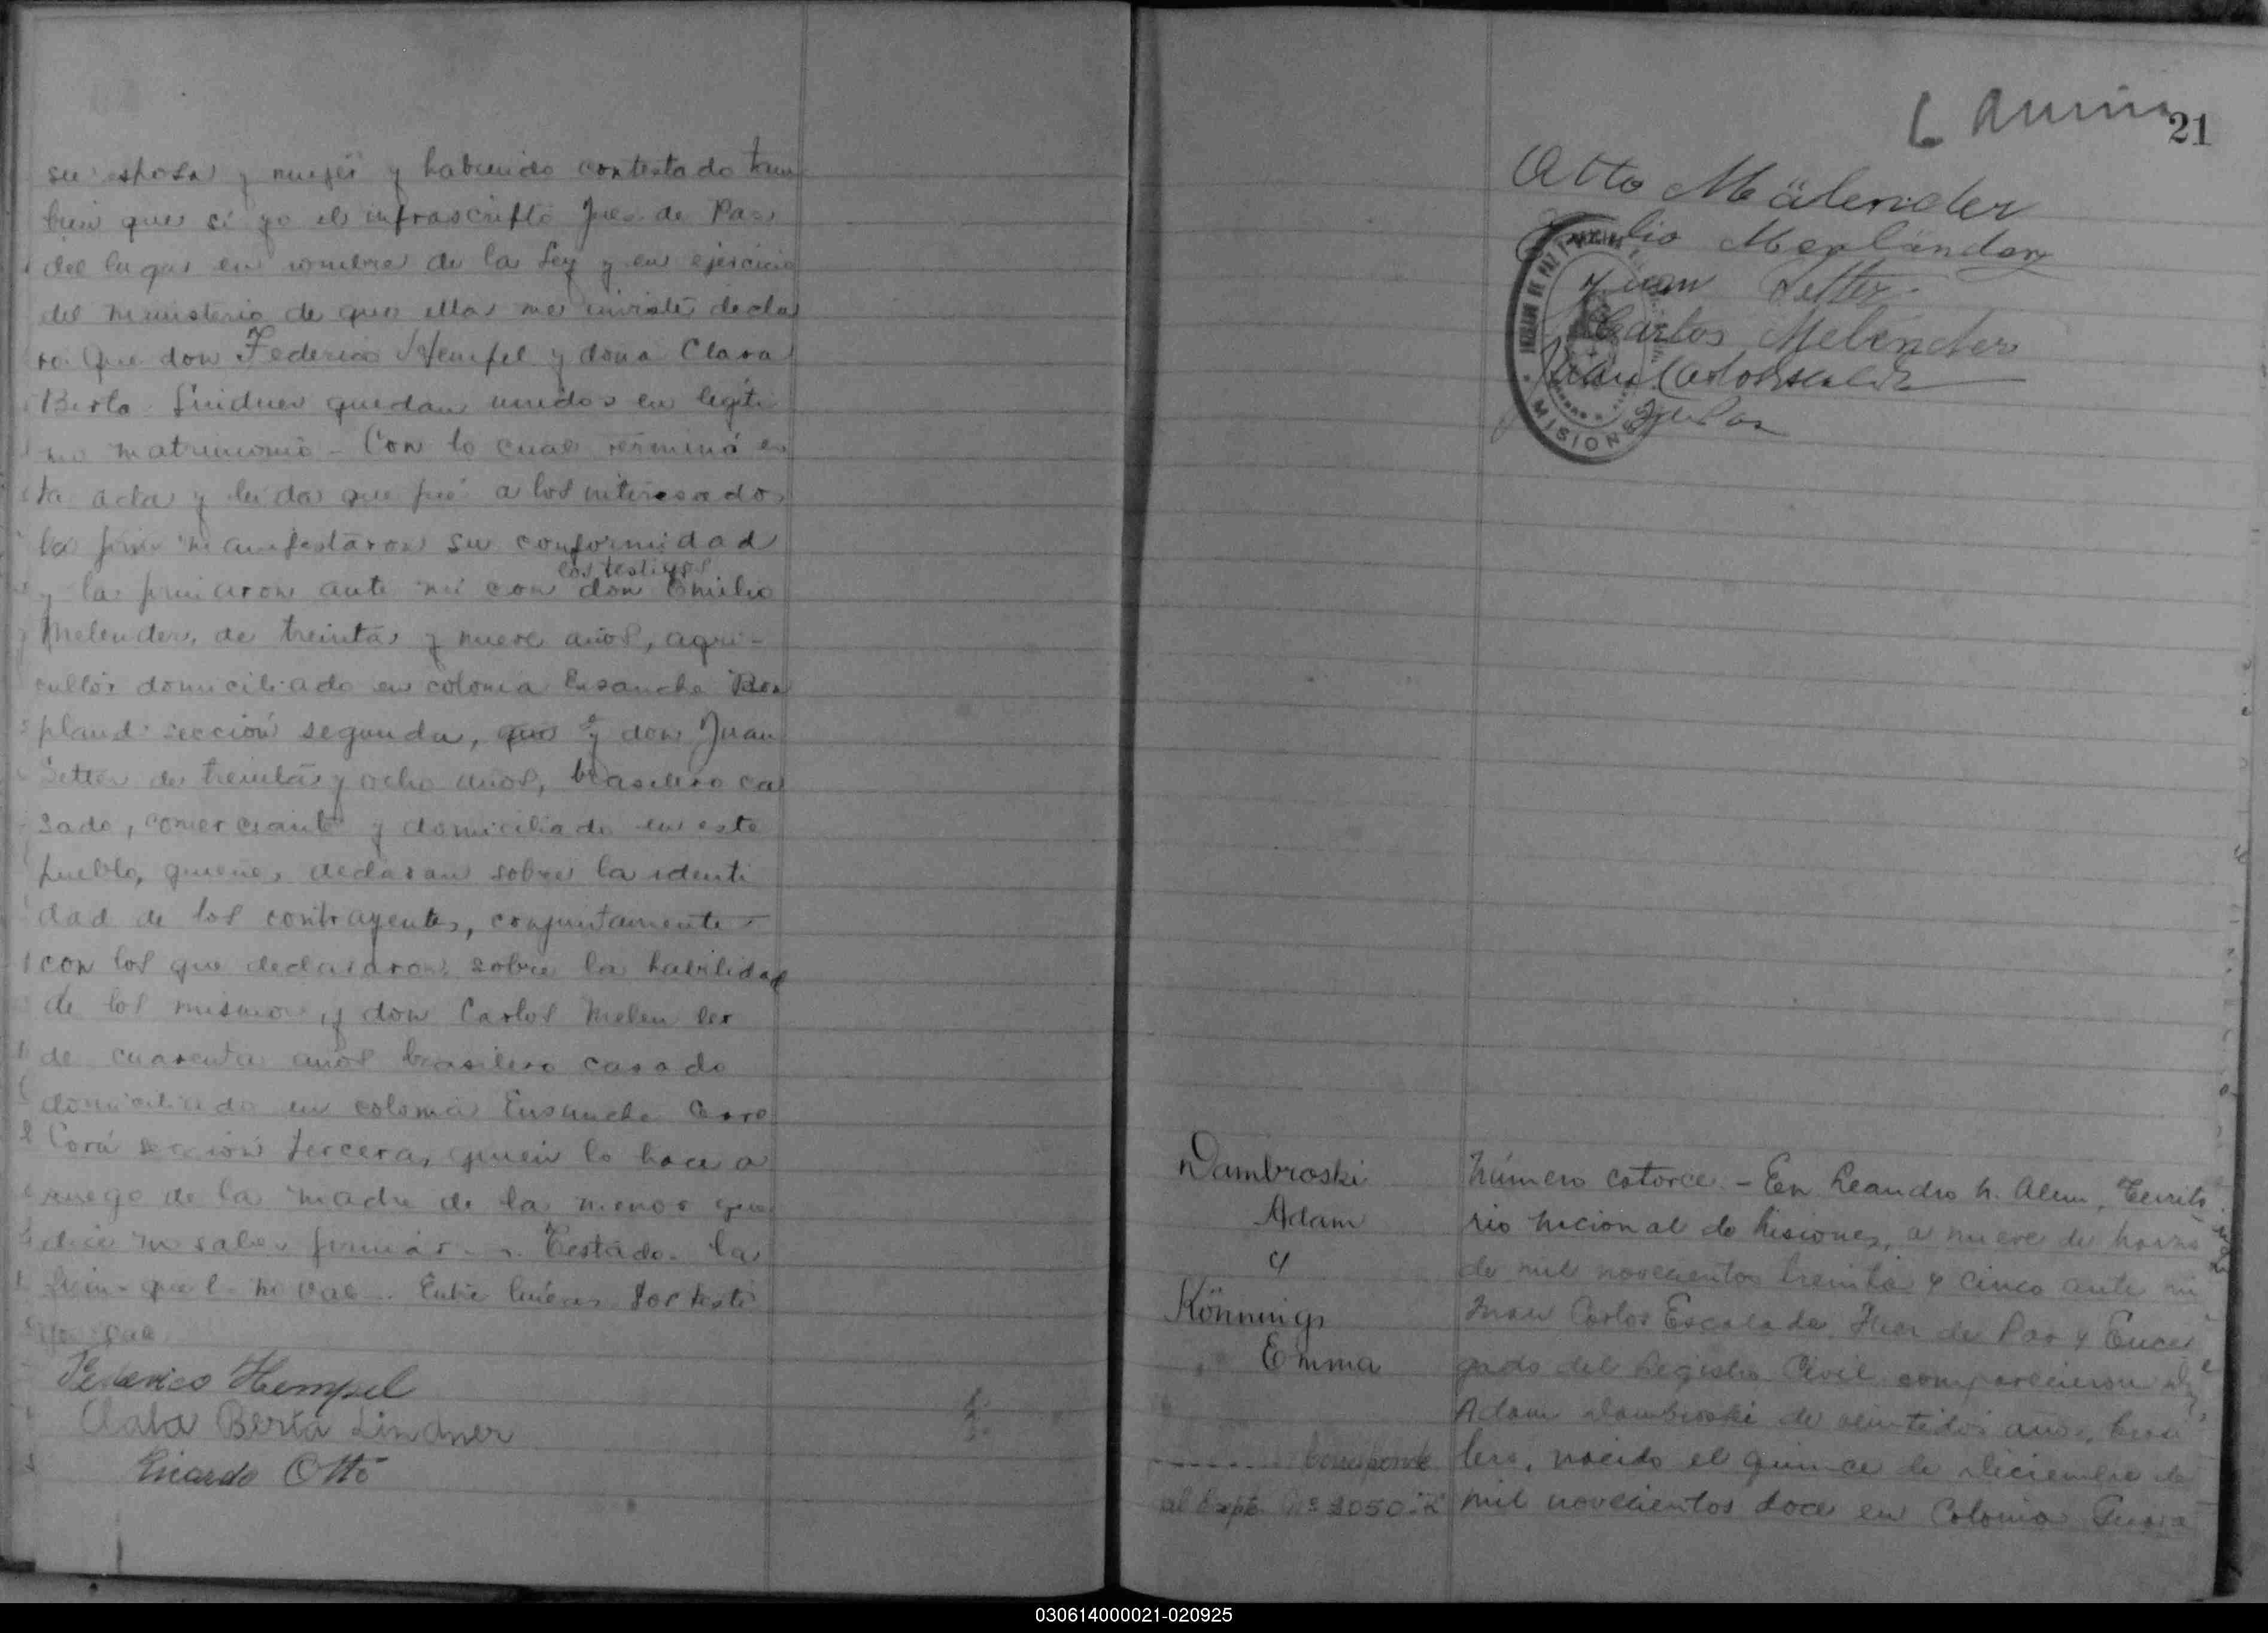 su esposa y mujer y habiendo contestado tam
bien que si yo el infrascripto Juez de Paz
del lugar en nombre de la Ley y en ejercicio
del ministerio de que ella me inviste decla
ro: Que don Federico Hempel y doña Clara
Berta Lindner quedan unidos en legíti
mo matrimonio - Con lo cual terminó es
ta acta y leida que fué a los interesados
la manifestaron su conformidad
los testigos
y la firmaron ante mi con don Emilio
Melender, de treinta y nueve años, agri-
cultor domiciliado en colonia Ensanche Bon
pland sección segunda, que y don Juan
Setter de treinta y ocho años, brasilero ca
sado, comerciante y domiciliado en este
pueblo, quienes declaran sobre la identi
dad de los contrayentes, conjuntamente
con los que declararon sobre la habilidad
de los mismos, y don Carlos Melender
de cuarenta años brasilero casado
domiciliado en colonia Ensanche Cerro
Corá sección tercera, quien lo hace a
ruego de la madre de la menor que
dice no saber firmar. - Testado - la
que - no vale. Entre lineas los testi
gos vale
Federico Hempel
Clara Berta Lindner
Ricardo Otto
21
Otto Mälender
Emilio Merländer
Juan Setter
Carlos Melender
Juan Carlos Escalada
Juez Paz
JUZGADO DE PAZ
MISIONES
Dambroski
Adam
y
Könnings
Emma
corresponde
al Expte Nº 2050
Número catorce. - En Leandro N. Alem, Territo
rio Nacional de Misiones, a nueve de marzo
de mil novecientos treinta y cinco ante mi
Juan Carlos Escalada Juez de Paz y Encar
gado del Registro Civil comparecieron don
Adam Dambroski de veintidos años, brasi
lero, nacido el quince de diciembre de
mil novecientos doce en Colonia Guara
030614000021-020925